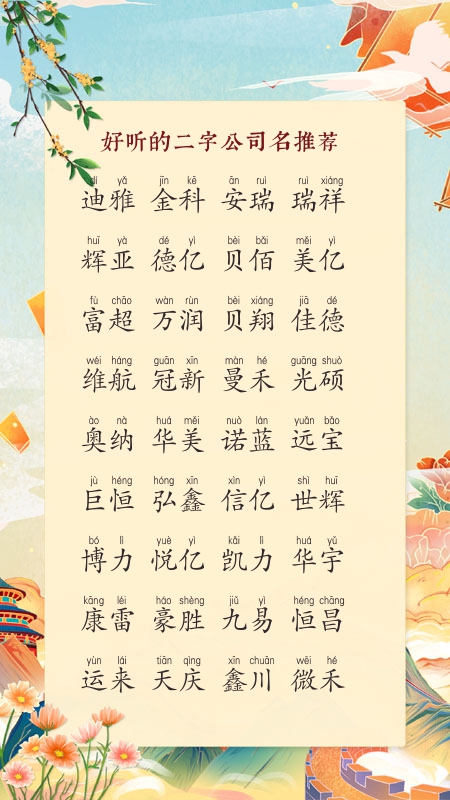 好听的二字公司名推荐
dí yǎ jīn kē ān ruì ruì xiáng
迪雅 金科 安瑞 瑞祥
huī yà dé yì bèi bǎi měi yì
辉亚 德亿 贝佰 美亿
fù chāo wàn rùn bèi xiáng jiā dé
富超 万润 贝翔 佳德
wéi háng guān xīn màn hé guāng shuò
维航 冠新 曼禾 光硕
ào nà huá měi nuò lán yuǎn bǎo
奥纳 华美 诺蓝 远宝
jù héng hóng xīn xìn yì shì huī
巨恒 弘鑫 信亿 世辉
bó lì yuè yì kǎi lì huá yǔ
博力 悦亿 凯力 华宇
kāng léi háo shèng jiǔ yì héng chāng
康雷 豪胜 九易 恒昌
yùn lái tiān qìng xīn chuān wēi hé
运来 天庆 鑫川 微禾